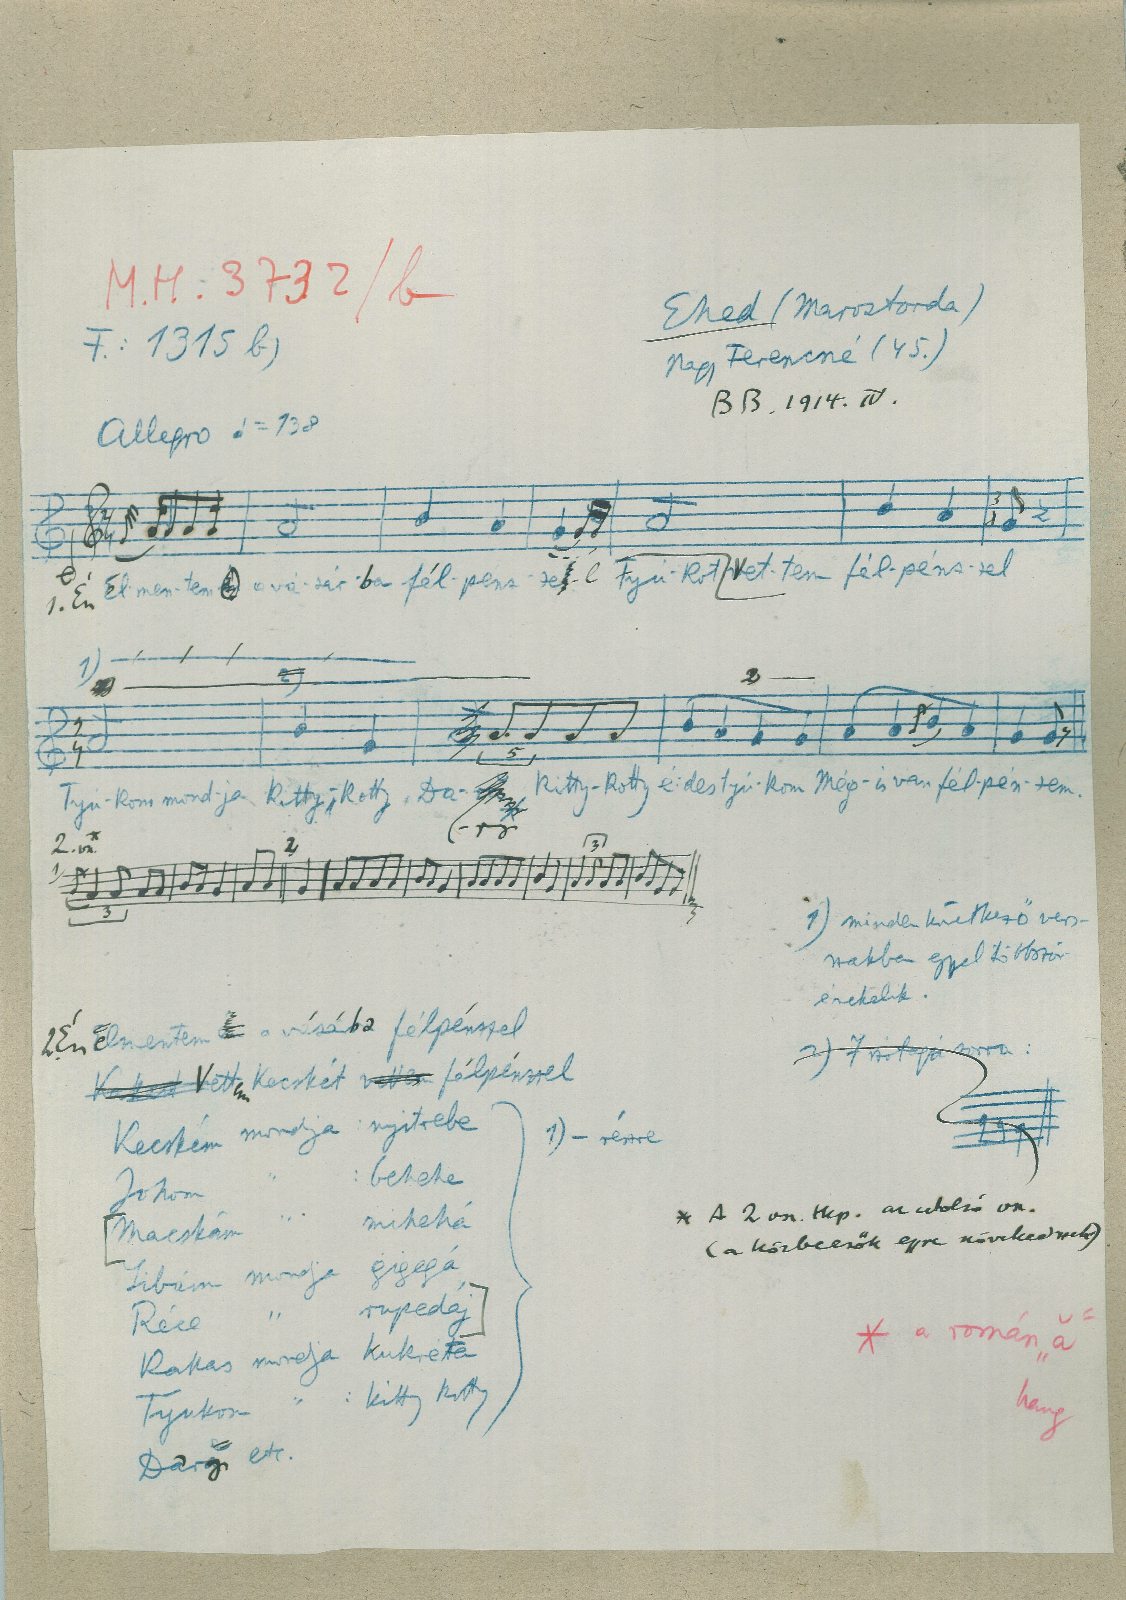 M.H.: 3732/b
F.: 1315 b)
Ehed (Marostorda)
Nagy Ferencné (45.)
BB. 1914. IV.
Allegro ♩ = 138
1. Én El-men-tem a vá-sár-ba fél-pénz-zel Tyú-kot Vet-tem fél-pénz-zel
1)
2)
2
Tyú-kom mond-ja Kitty-Kotty, Da- Kitty-Kotty é-des tyú-kom Még-is van fél-pén-zem.
5
2. vsz.*
1)
2
3
3
1) minden következő vers-
szakban egyel többször
éneklik.
2) 7 szótagú sorra:
2. Én Elmentem a vásába félpénzzel
Vettem Kecskét félpénzzel
Kecském mondja: nyitrebe
Johom " : behehe
Macskám " mihehá
Libám mondja gigegá
Réce " rupedáj
Kakas mondja kukrétá
Tyukom " : kitty kotty
Darǎ etc.
1) - részre
* A 2 vsz. tkp. az utolsó vsz.
(a közbeesők egyre növekednek)
* a román „ă"
hang